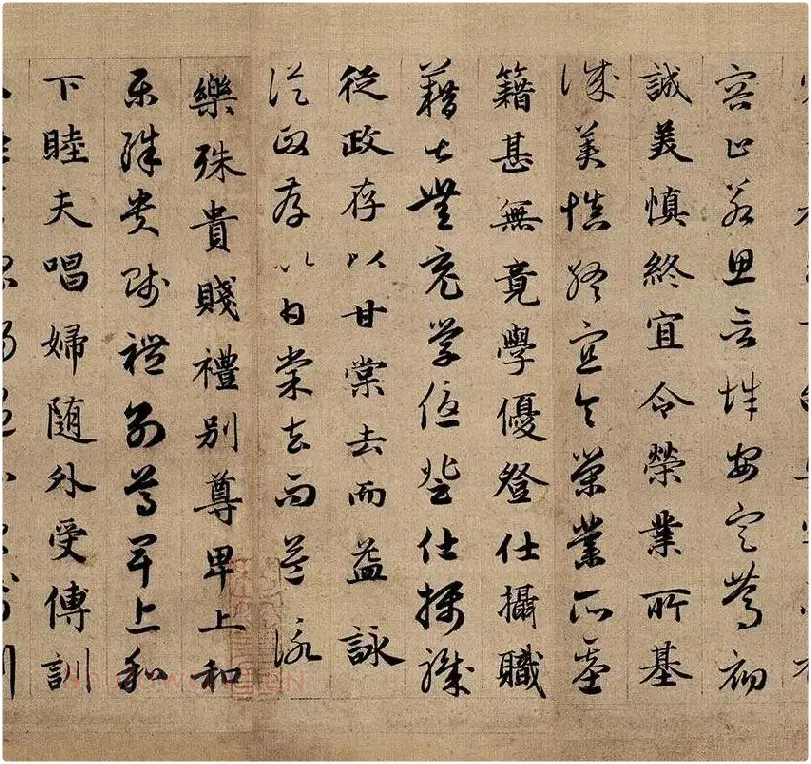 容止若思言辭安定篤初
誠美慎終宜令榮業所基
誠美慎終宜令榮業所基
籍甚無竟學優登仕攝職
籍甚無竟學優登仕攝職
從政存以甘棠去而益詠
從政存以甘棠去而益詠
樂殊貴賤禮別尊卑上和
樂殊貴賤禮別尊卑上和
下睦夫唱婦随外受傅訓